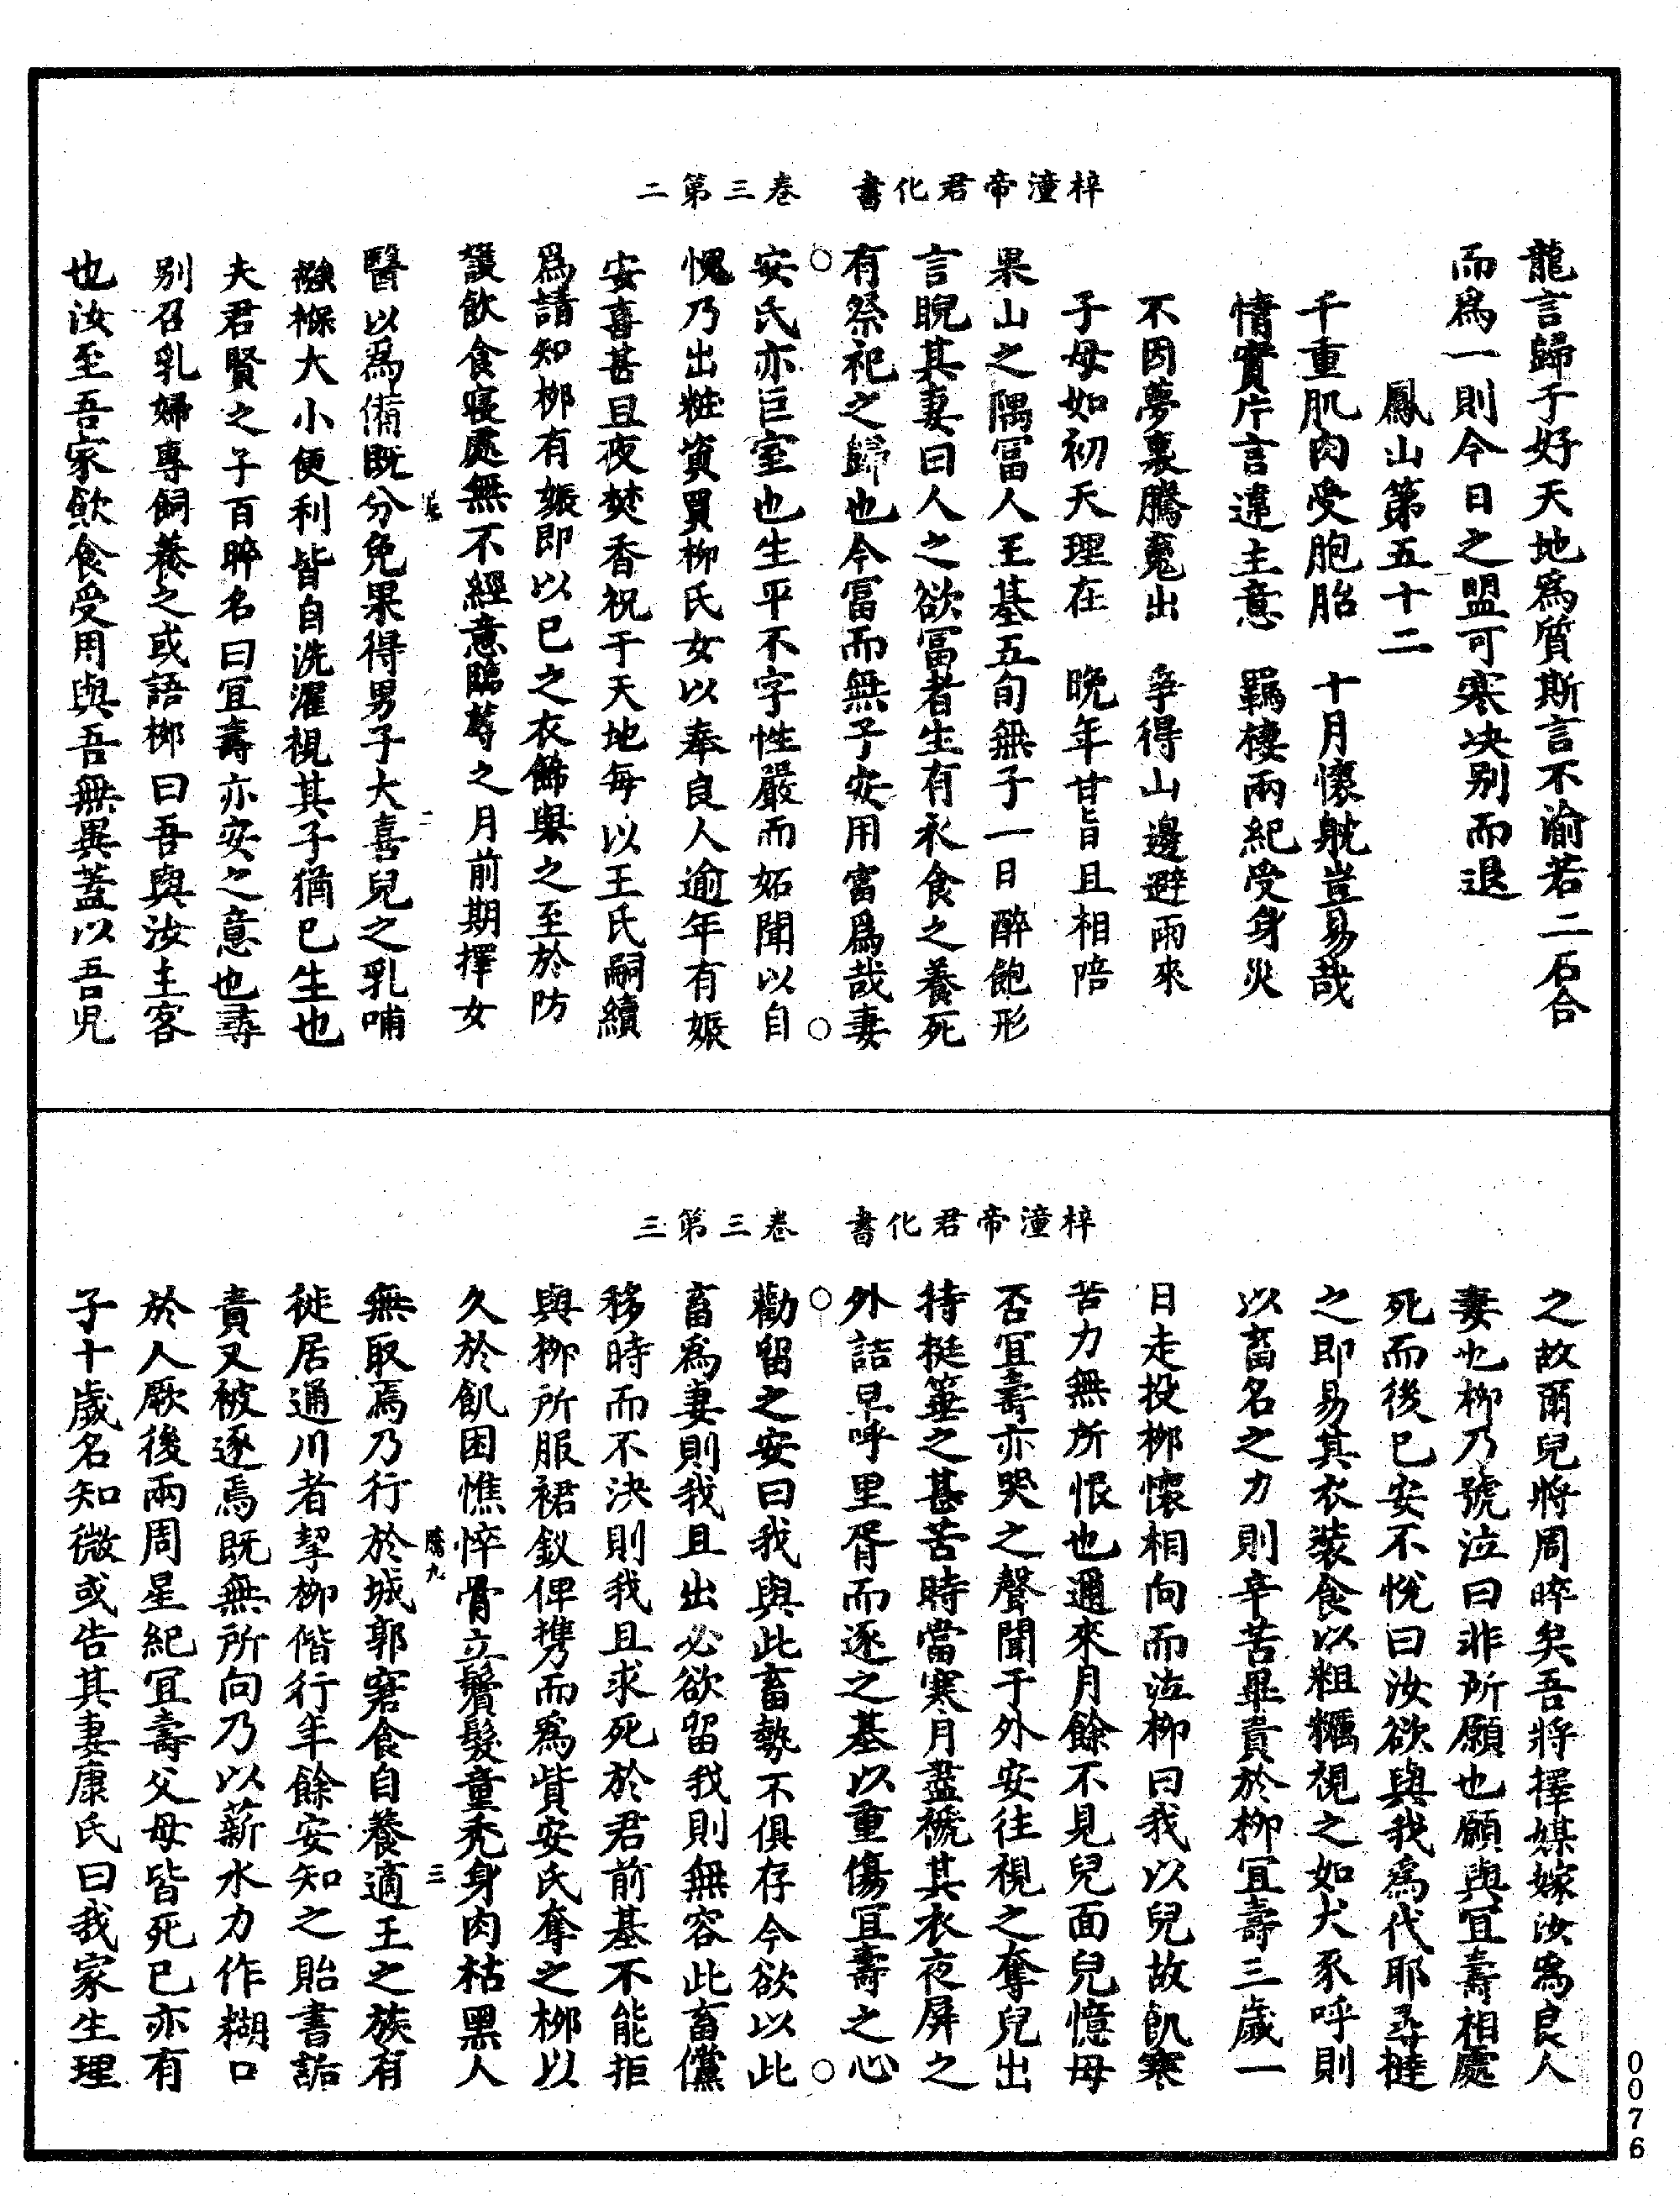 梓潼帝君化書　卷三第二
龍言歸于好天地為質斯言不渝若二石合
而為一則今日之盟可寒决别而退
鳳山第五十二
千重肌肉受胞胎　十月懷躭豈易哉
情實片言違主意　羈棲兩紀受身災
不因夢裏騰魂出　争得山邊避雨來
子母如初天理在　晚年甘旨且相陪
果山之隅冨人王基五旬無子一日醉飽形
言睨其妻曰人之欲冨者生有衣食之養死
有祭祀之歸也今冨而無子安用富為哉妻
安氏亦巨室也生平不字性嚴而妬聞以自
愧乃出粧資買柳氏女以奉良人逾年有娠
安喜甚且夜焚香祝于天地每以王氏嗣續
為請知柳有娠即以已之衣飾與之至於防
護飲食寝處無不經意臨蓐之月前期擇女
醫以為備既分免果得男子大喜兒之乳哺
襁褓大小便利皆自洗濯視其子猶已生也
夫君賢之子百晬名曰冝壽亦安之意也尋
别召乳婦專飼養之或語柳曰吾與汝主客
也汝至吾家飲食受用與吾無異蓋以吾児
梓潼帝君化書　卷三第三
之故爾兒將周晬矣吾將擇媒嫁汝為良人
妻也柳乃號泣曰非所願也願與冝壽相處
死而後已安不悅曰汝欲與我為代耶尋撻
之即易其衣裝食以粗糲視之如犬豕呼則
以畜名之力則辛苦畢責於柳冝壽三歲一
日走投柳懷相向而泣柳曰我以兒故飢寒
苦力無所恨也邇來月餘不見兒面兒憶母
否冝壽亦哭之聲聞于外安往視之奪兒出
持梃箠之甚苦時當寒月盡褫其衣夜屏之
外詰早呼里胥而逐之基以重傷冝壽之心
勸留之安曰我與此畜勢不俱存今欲以此
畜為妻則我且出必欲留我則無容此畜儻
移時而不決則我且求死於君前基不能拒
與柳所服裙釵俾携而為貲安氏奪之柳以
久於飢困憔悴骨立鬢髮童秃身肉枯黑人
無取焉乃行於城郭窘食自養適王之族有
徙居通川者挈柳偕行年餘安知之貽書詬
責又被逐焉既無所向乃以薪水力作糊口
於人厥後兩周星紀冝壽父母皆死已亦有
子十歲名知微或告其妻康氏曰我家生理
騰九
二
三
0076